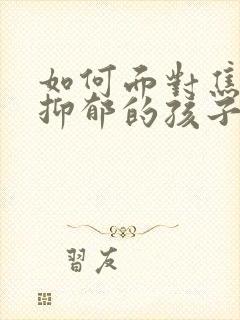 如何面對焦
抑郁的孩子
習友